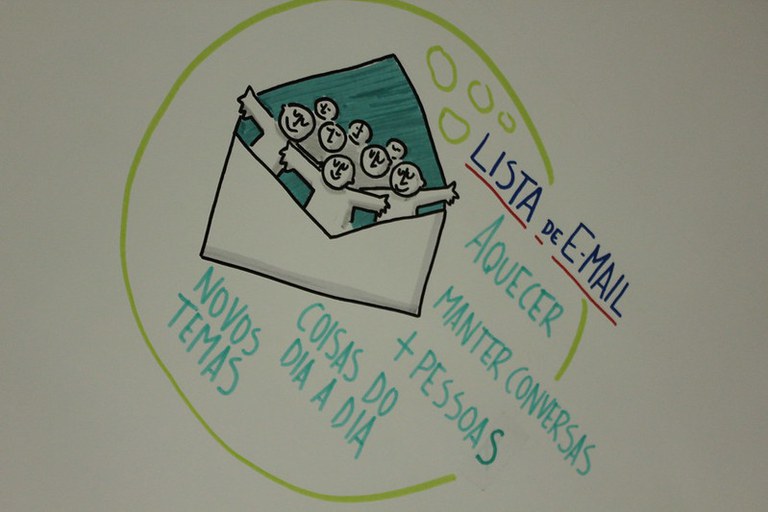 LISTA DE E-MAIL
AQUECER
MANTER CONVERSAS
+ PESSOAS
COISAS DO
DIA A DIA
NOVOS
TEMAS